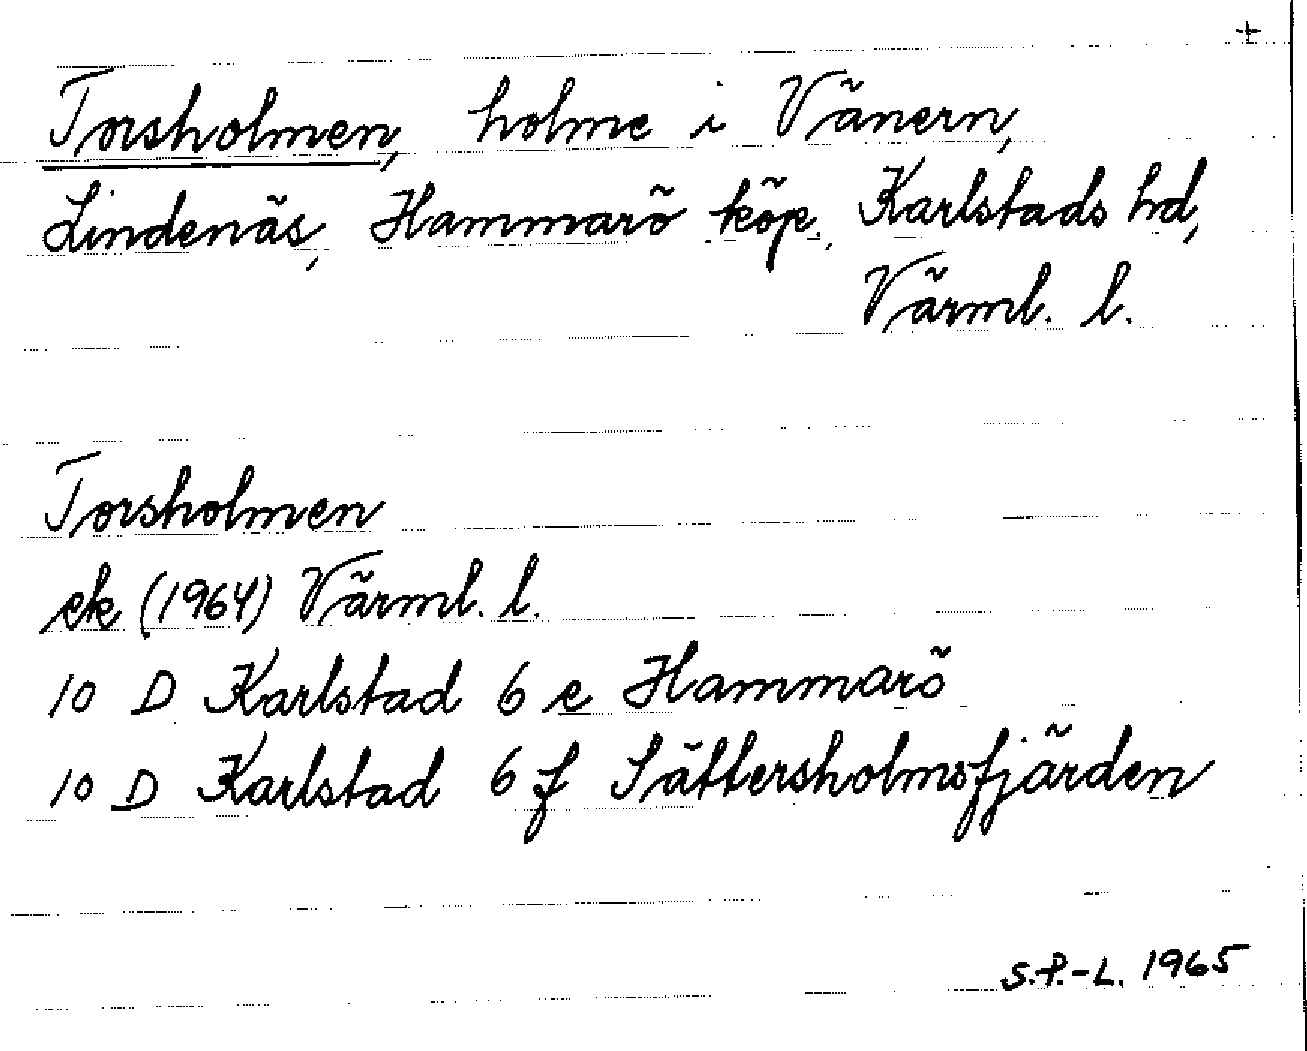 +
Torsholmen, holme i Vänern,
Lindenäs, Hammarö köp., Karlstads hd,
Värml. l.
Torsholmen
ek (1964) Värml. l.
10 D Karlstad 6 e Hammarö
10 D Karlstad 6 f Sättersholmsfjärden
S.P.-L. 1965